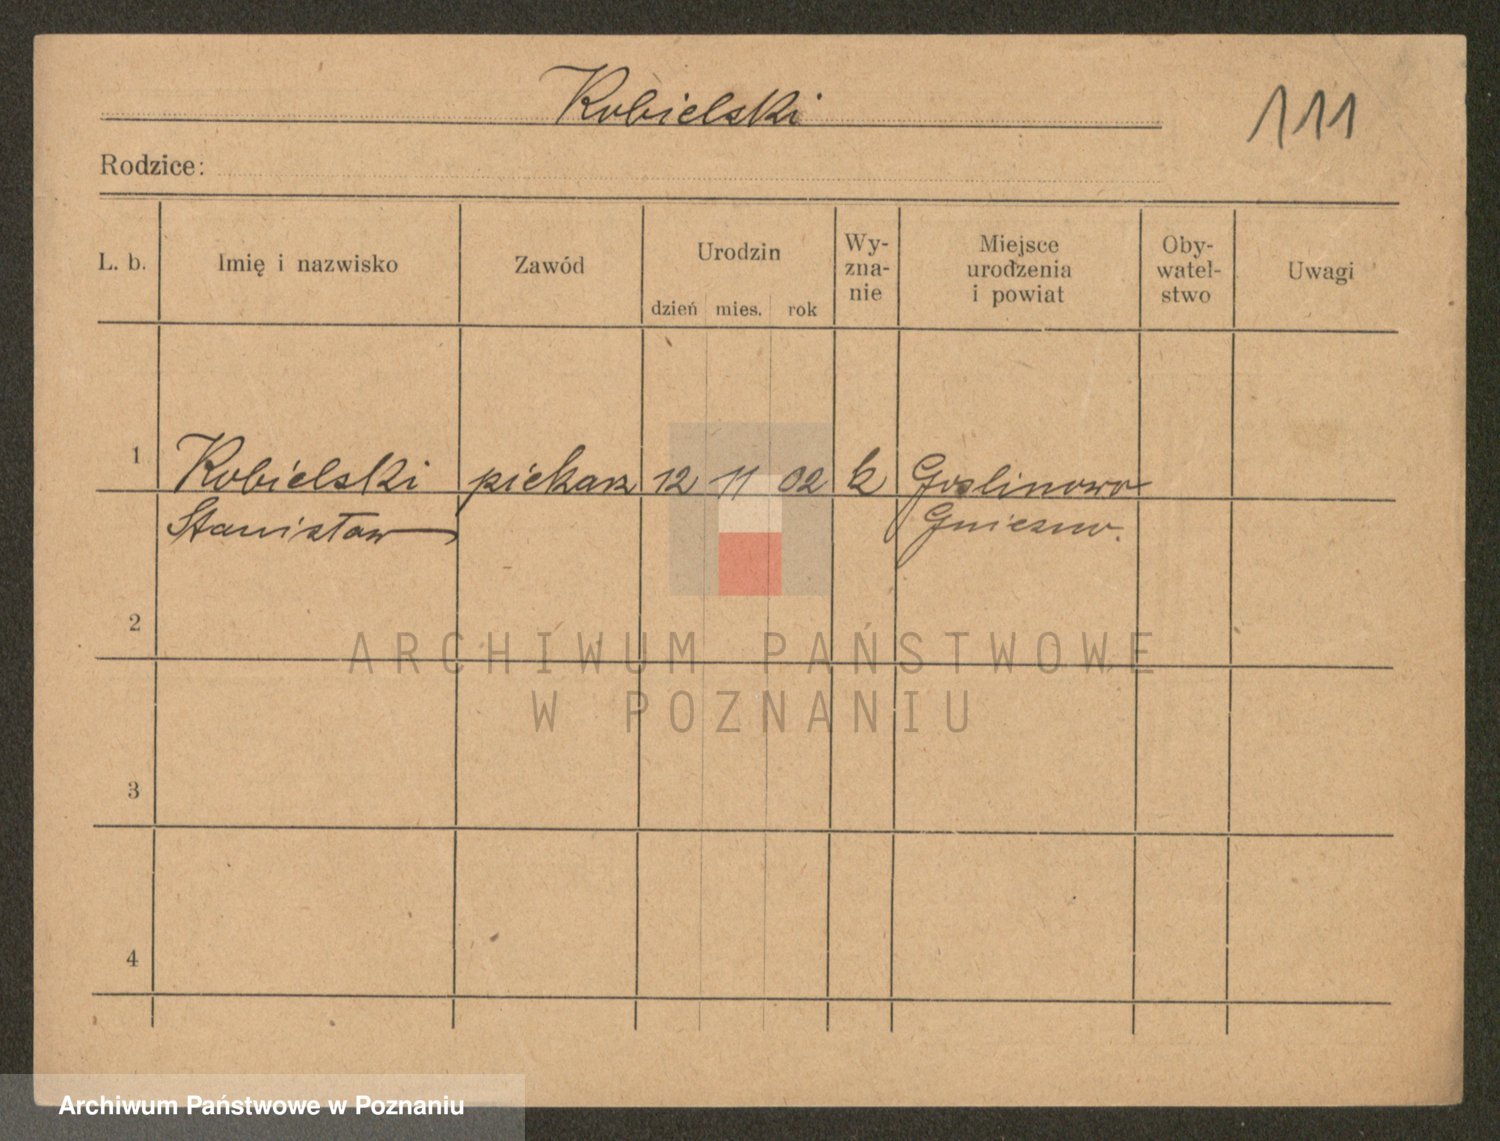 Kobielski
111
Rodzice:
L. b. Imię i nazwisko Zawód Urodzin Wy-zna-nie Miejsce urodzenia i powiat Oby-watel-stwo Uwagi
dzień mies. rok
1 Kobielski piekarz 12 11 02 k Goslinowo
Stanisław Gniezno.
2
ARCHIWUM PAŃSTWOWE
W POZNANIU
3
4
Archiwum Państwowe w Poznaniu